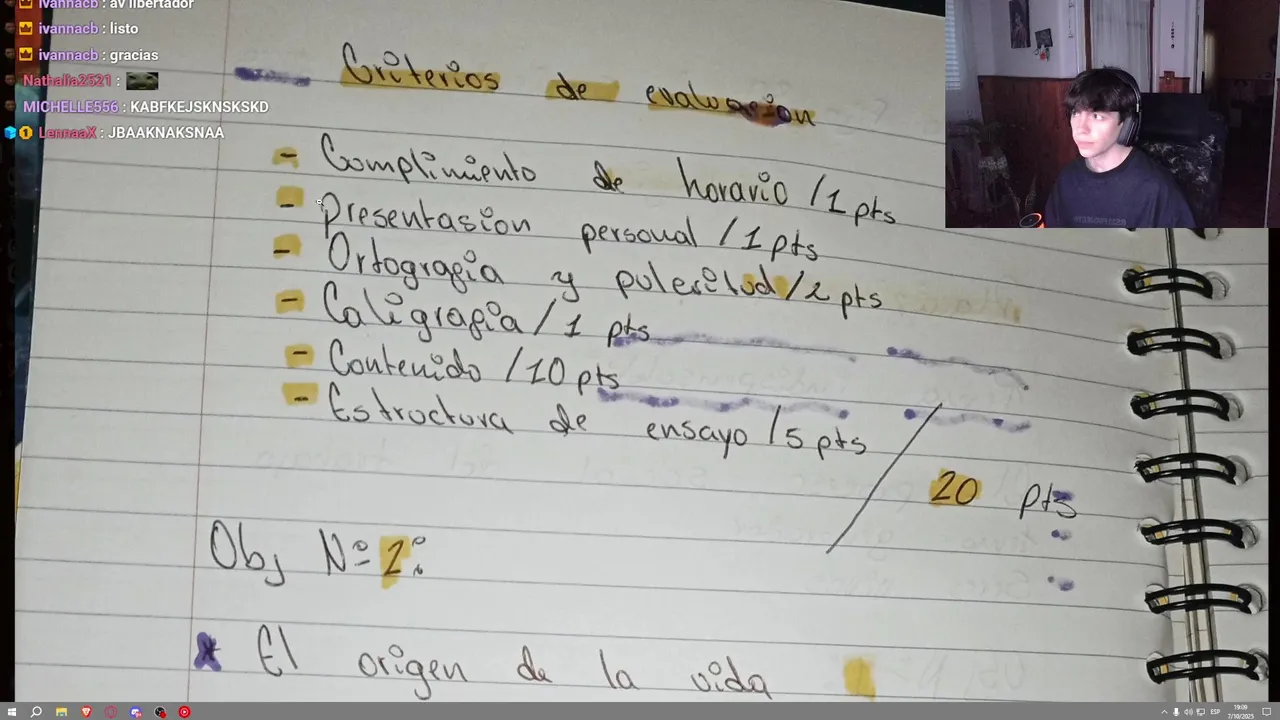 ivannacb : av libertador
ivannacb : listo
ivannacb : gracias
Nathalia2521 :
MICHELLE556 : KABFKEJSKNSKSKD
LennaaX : JBAAKNAKSNAA
Criterios de evaluacion
- Complimiento de horario /1 pts
- Presentasion personal /1 pts
- Ortografia y pulcritud /2 pts
- Caligrafia /1 pts
- Contenido /10 pts
- Estructura de ensayo /5 pts
20 pts
Obj Nº 2:
* El origen de la vida
ESP
19:09
7/10/2025